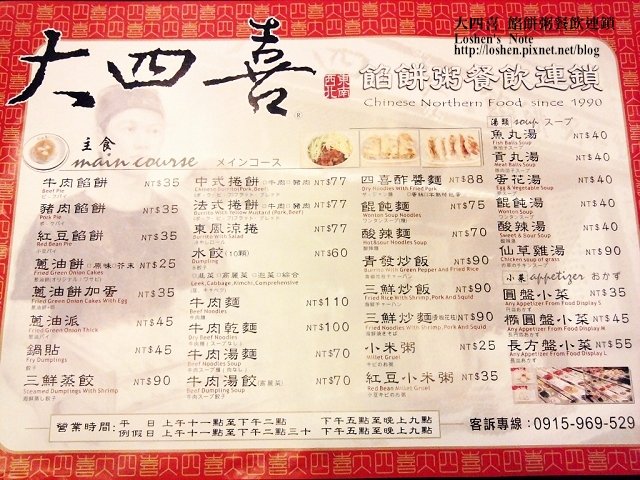 大四喜 餡餅粥餐飲連鎖
Loshen's Note
http://loshen.pixnet.net/blog
大四喜
東南西北
餡餅粥餐飲連鎖
Chinese Northern Food since 1990
主食
main course メインコース
牛肉餡餅 NT$35
Beef Pie
豬肉餡餅 NT$35
Pork Pie
紅豆餡餅 NT$35
Red Bean Pie
蔥油餅(原味 芥末) NT$25
Fried Green Onion Cakes
蔥油餅加蛋 NT$35
Fried Green Onion Cakes With Egg
蔥油派 NT$45
Fried Green Onion Thick
鍋貼 NT$45
Fry Dumplings
三鮮蒸餃 NT$90
Steamed Dumplings With Shrimp
中式捲餅 牛肉 豬肉 NT$77
法式捲餅 牛肉 豬肉 NT$77
Burrito With Yellow Mustard (Pork,Beef)
東風涼捲 NT$77
Burrito With Salad
水餃(10顆) NT$60
Dumpling
韭菜 高麗菜 泡菜 綜合
Leek, Cabbage, Kimchi, Comprehensive
牛肉麵 NT$110
Beef Noodles
牛肉乾麵 NT$100
Dry Beef Noodles
牛肉湯麵 NT$70
Beef Noodles Soup
牛肉湯餃(高麗菜) NT$70
Beef Dumpling Soup
四喜酢醬麵 NT$88
Dry Noodles With Fried Pork
餛飩麵 NT$75
Wonton Soup Noodles
酸辣麵 NT$70
Hot&sour Noodles Soup
青發炒飯 NT$90
Burrito With Green Pepper And Fried Rice
三鮮炒飯 NT$90
Fried Rice With Shrimp, Pork And Squid
三鮮炒麵 NT$90
Fried Noodles With Shrimp, Pork And Squid
小米粥 NT$25
Millet Gruel
紅豆小米粥 NT$35
湯類 soup スープ
魚丸湯 NT$40
Fish Balls Soup
貢丸湯 NT$40
Meat Balls Soup
蛋花湯 NT$40
Egg & Vegetable Soup
餛飩湯 NT$40
Wonton Soup
酸辣湯 NT$40
Sweet & Sour Soup
仙草雞湯 NT$90
Chicken soup of grass
小菜 appetizer おかず
圓盤小菜 NT$35
Any Appetizer From Display S
橢圓盤小菜 NT$45
Any Appetizer From Display M
長方盤小菜 NT$55
Any Appetizer From Display L
營業時間: 平 日 上午十一點至下午二點 下午五點至晚上九點
例假日 上午十一點至下午二點三十 下午五點至晚上九點
客訴專線:0915-969-529